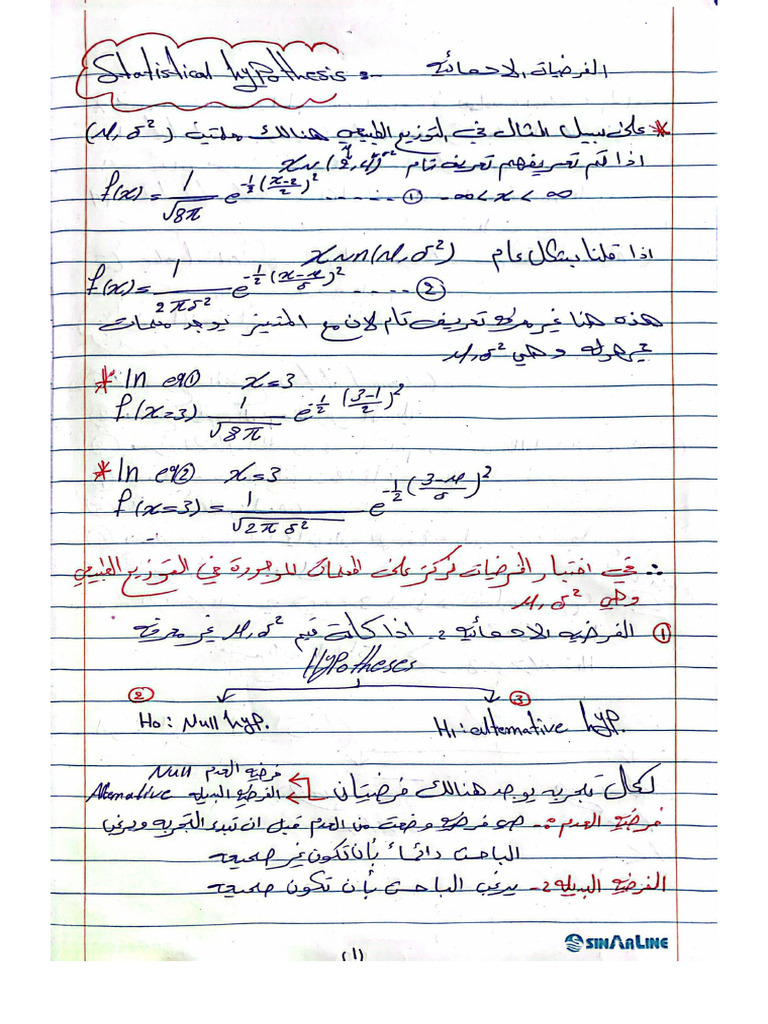 Statistical hypothesis :- الفرضيات الاحصائية
* على سبيل المثال في التوزيع الطبيعي هنالك معلمتين (μ, σ²)
اذا تم تعريفهم تعريف تام x~(2,4)
f(x) = 1/√8π e^-1/2(x-2/2)² ...... ① -∞<x<∞
اذا قلنا بشكل عام x~n(μ,σ²)
f(x) = 1/2πσ² e^-1/2(x-μ/σ)² ...... ②
هذه هنا غير معرفه تعريف تام لان مع المتغير يوجد معلمات
مجهولة وهي μ,σ²
* In eq① x=3
f(x=3) 1/√8π e^-1/2(3-1/2)²
* In eq② x=3
f(x=3) = 1/√2πσ² e^-1/2(3-μ/σ)²
∴ في اختبار الفرضيات نركز على المعلمات الموجودة في التوزيع الطبيعي
وهي μ,σ²
① الفرضيه الاحصائيه :- اذا كانت قيم μ,σ² غير معرفة
Hypotheses
② ③
Ho: Null hyp. H1: alternative hyp.
لكل تجربه يوجد هنالك فرضيتان
فرضية العدم Null
الفرضيه البديله Alternative
فرضية العدم :- هي فرضيه وضعت من العدم قبل ان تبدء التجربه ويرغب
الباحث دائماً بأن تكون غير صحيحه
الفرضيه البديله :- يرغب الباحث بأن تكون صحيحه
SINARLINE
(1)